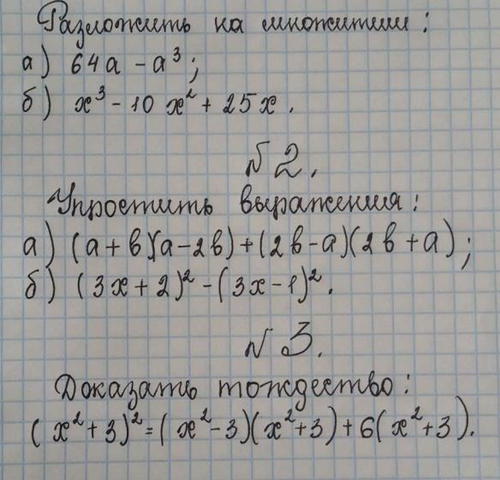 Разложить на множители:
а) 64a - a³;
б) x³ - 10x² + 25x.
№2.
Упростить выражения:
а) (a+b)(a-2b)+(2b-a)(2b+a);
б) (3x+2)² - (3x-1)².
№3.
Доказать тождество:
(x²+3)² = (x²-3)(x²+3)+6(x²+3).